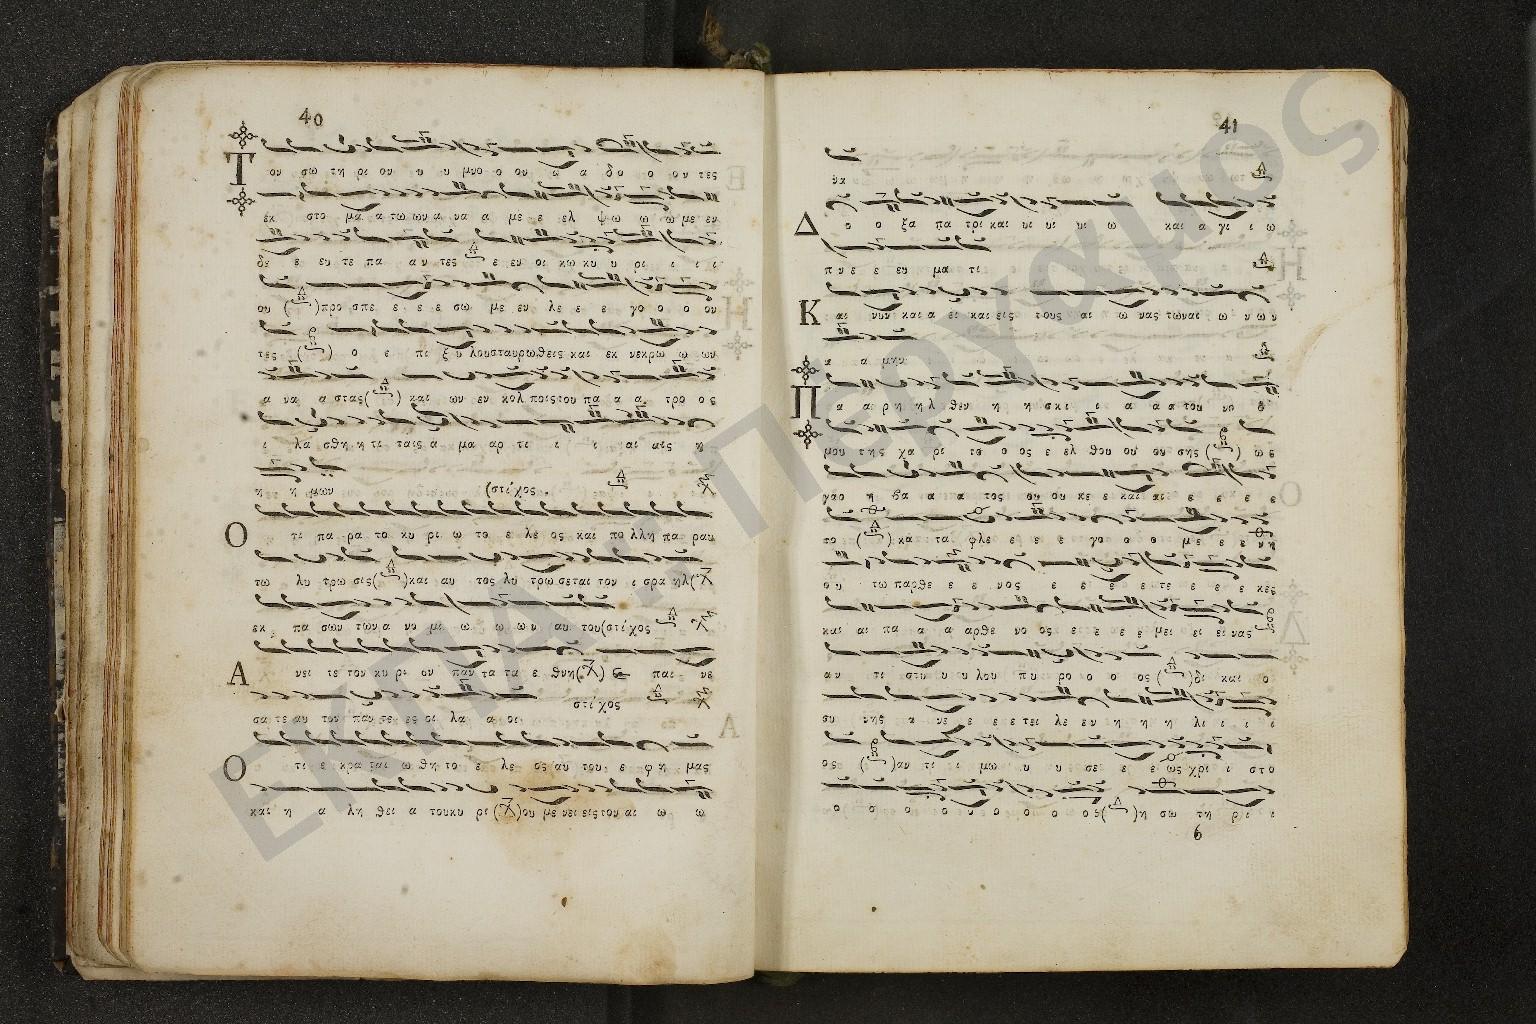 40
Τ ου σω τη ρι ου υ υ μνο ο ου α α δο ο ον τες
εκ στο μα α τω ων α να α με ε ελ ψω ω ω ω με εν
δε ε ευ τε πα αν τες ε εν οι κω κυ υ ρι ι ι ι
ου ( )προ σπε ε ε ε σω με εν λε ε ε γο ο ο ον
τες ( ) ο ε πι ξυ λου σταυ ρω θεις και εκ νεκρω ω ων
α να α στας( ) και ων εν κολ ποις του πα α α τρο ο ς
ι λα σθη η τι ταις α μα αρ τι ι ι ι αι αις η
η η μων (στίχος .
Ο τι πα ρα το κυ ρι ω το ε λε ος και πο λλη πα ραυ
τω λυ τρω σις( )και αυ τος λυ τρω σεται τον ι σρα ηλ(
εκ πα σων των α νο μι ω ω ω ν αυ του(στίχος
Α νει τε τον κυ ρι ον παν τα τα ε θνη( ) επαι νε
σα τε αυ τον παν τε ε ες οι λα α οι στίχος
Ο τι ε κρα ται ω θη το ε λε ος αυ του ε φ η μας
και η α λη θει α του κυ ρι ( )ου με νει εις τον αι ω ω
41
να
Δ ο ο ξα πα τρι και υι υι υι ω και α γι ι ω
πνε ε ευ μα τι
Κ αι νυν και α ει και εις τους αι ω νας των αι ω νων
α α μην
Π α α ρη ηλ θεν η η σκι ι α α α του νο ο
μου της χα ρι το ο ος ε ελ θου ου ου σης ( ) ω ς
γαρ η βα α α τος ου ουκ ε ε και αι ε ε ε ε
το ( ) κα τα φλε ε ε ε γο ο ο με ε ε νη
ου τω παρθε ε ε νος ε ε ε ε τε ε ε ε κες
και αι πα α α αρθε νο ος ε ε ε ε μει ει ει νας
αν τι στυ υ υ λου πυ ρο ο ο ος ( )δι και ο
συ νης α νε ε ε ε τει λε εν η η η λι ι ι ι
ος ( )αν τι ι μω υ υ σε ε ε ως χρι ι στο
ο ο ο ο ο ο ο ο ος( )η σω τη ρι ι
6
ΕΚΠΑ - Πέργαμος